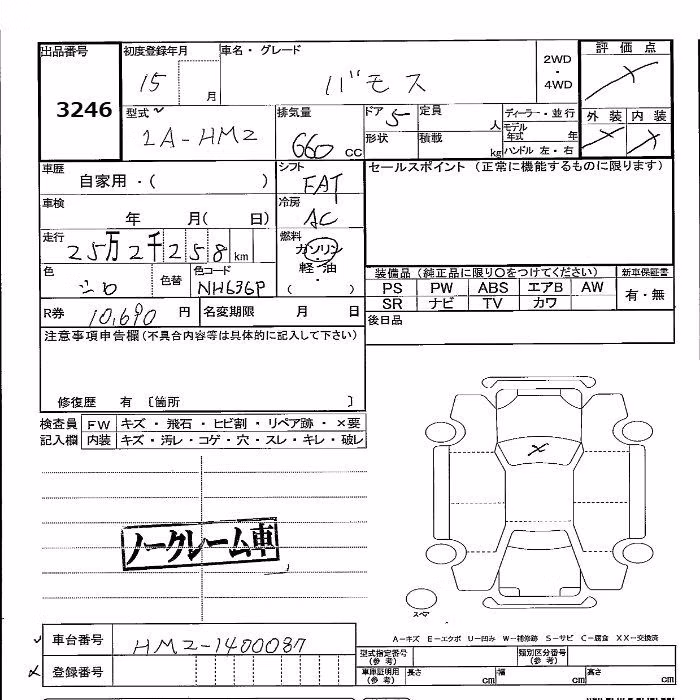 出品番号 初度登録年月 車名・グレード 2WD・4WD 評価点
3246 15 月 バモス
型式 排気量 ドア 5 定員 人 ディーラー・並行 外装 内装
LA-HM2 660 cc 形状 積載 kg モデル年式 年
ハンドル 左・右
車歴 シフト セールスポイント(正常に機能するものに限ります)
自家用・( ) FAT
車検 冷房
年 月( 日) AC
走行 燃料
25万2千258km ガソリン・軽油・( )
色 色替 色コード 装備品(純正品に限り○をつけてください) 新車保証書
シロ NH636P PS PW ABS エアB AW 有・無
SR ナビ TV カワ
R券 10,690 円 名変期限 月 日 後日品
注意事項申告欄(不具合内容等は具体的に記入して下さい)
修復歴 有 〔箇所 〕
検査員 FW キズ・飛石・ヒビ割・リペア跡・×要
記入欄 内装 キズ・汚レ・コゲ・穴・スレ・キレ・破レ
×
ノークレーム車
スペア
A-キズ E-エクボ U-凹み W-補修跡 S-サビ C-腐食 XX-交換済
車台番号 HM2-1400087 型式指定番号(参考) 類別区分番号(参考)
登録番号 車庫証明用(参考) 長さ cm 幅 cm 高さ cm